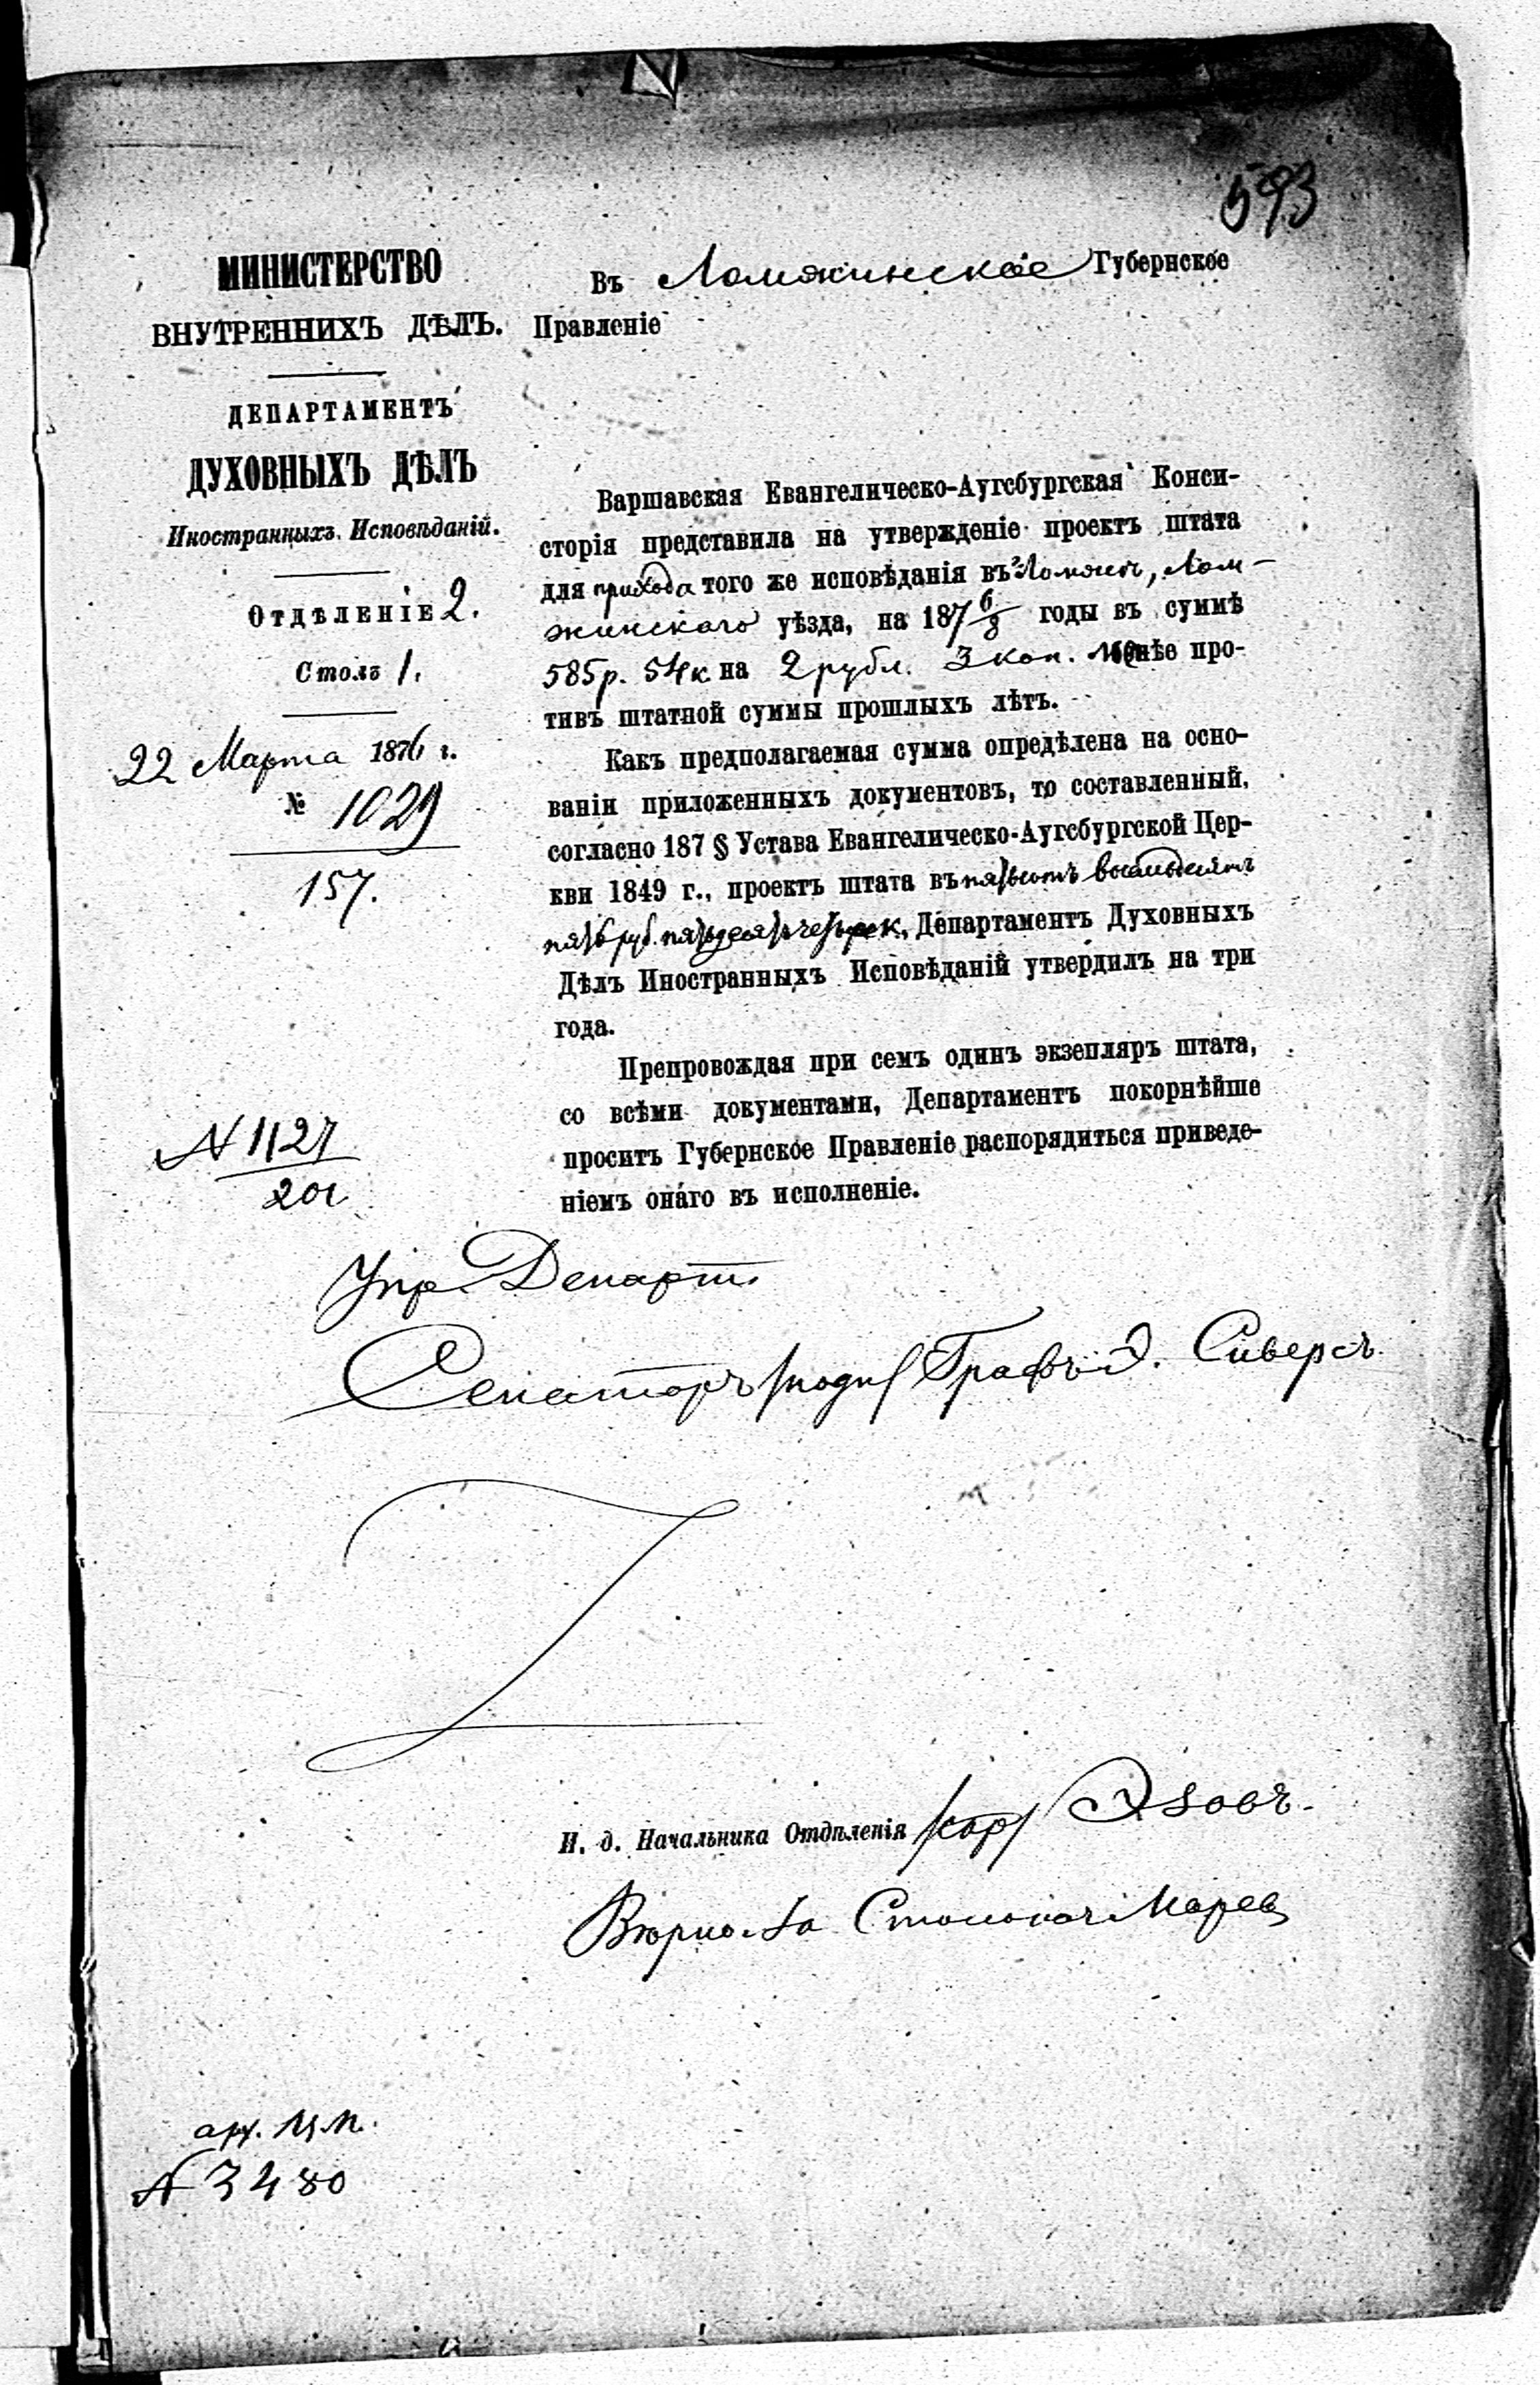 593
МИНИСТЕРСТВО
ВНУТРЕННИХЪ ДѢЛЪ.
ДЕПАРТАМЕНТЪ
ДУХОВНЫХЪ ДѢЛЪ
Иностранныхъ Исповѣданій.
Отдѣленіе 2.
Столъ 1.
22 Марта 1876 г.
№ 1029
157.
N 1127
201
Въ Ломжинское Губернское
Правленіе
Варшавская Евангелическо-Аугсбургская Конси-
сторія представила на утвержденіе проектъ штата
для прихода того же исповѣданія въ Ломжѣ, Лом-
жинскаго уѣзда, на 187 6/8 годы въ суммѣ
585 р. 54 к на 2 рубл. 3 коп. менѣе про-
тивъ штатной суммы прошлыхъ лѣтъ.
Какъ предполагаемая сумма опредѣлена на осно-
ваніи приложенныхъ документовъ, то составленный,
согласно 187 § Устава Евангелическо-Аугсбургской Цер-
кви 1849 г., проектъ штата въ пятьсотъ восемьдесятъ
пять руб. пятьдесятъ четыре к., Департаментъ Духовныхъ
Дѣлъ Иностранныхъ Исповѣданій утвердилъ на три
года.
Препровождая при семъ одинъ экзепляръ штата,
со всѣми документами, Департаментъ покорнѣйше
проситъ Губернское Правленіе распорядиться приведе-
ніемъ онаго въ исполненіе.
Упр. Департ.
Сенаторъ /подп/ Графъ Э. Сиверсъ.
И. д. Начальника Отдѣленія /кор/ Эзовъ.
Вѣрно. За Столонач.
арх.
N 3480